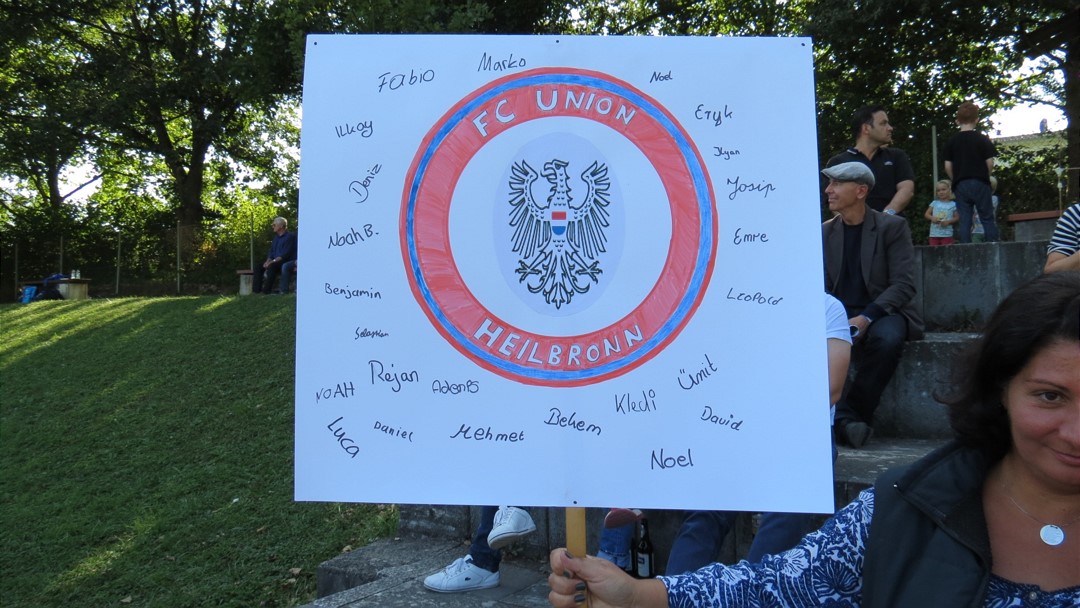 Marko
Fabio
Noel
FC UNION
Eryk
Ilkay
Ilyan
Deniz
Josip
Noah B.
Emre
Benjamin
Leopold
Sebastian
HEILBRONN
Rejan
Ümit
NOAH
Adonis
Kledi
Luca
Daniel
Mehmet
Behem
David
Noel